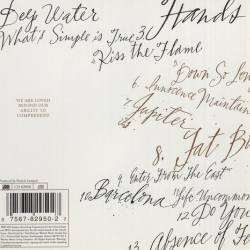 Deep Water
Hands
What's Simple is True
3.
4 Kiss the Flame
5 Down So Lon
6. Innocence Maintain
7. Jupiter
8. Fat B
WE ARE LOVED
BEYOND OUR
ABILITY TO
COMPREHEND
9. Enter From The East
10. Barcelona
11. Life Uncommon
12. Do You
13.
Absence of
7567-82950-2